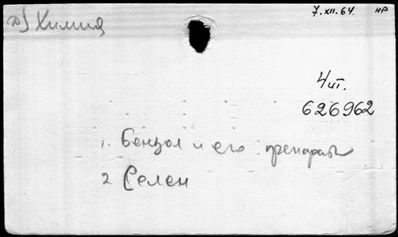 д) Химия
7.XII.64. нр
4 шт.
626962
1. Бензол и его препараты
2 Селен